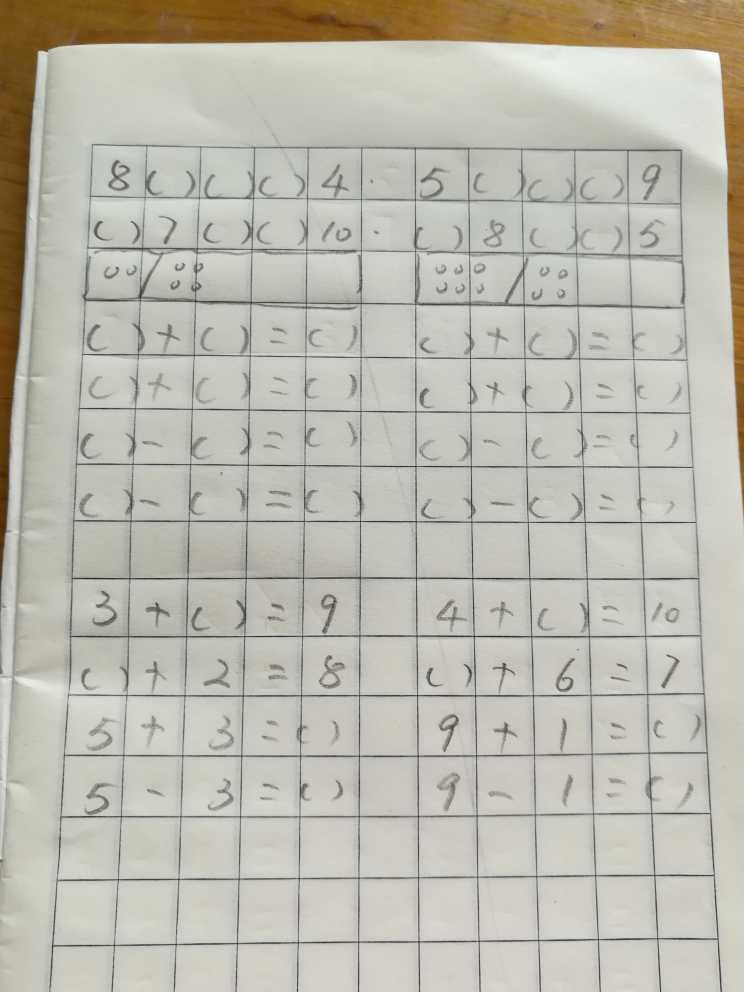 8 ( ) ( ) ( ) 4 . 5 ( ) ( ) ( ) 9
( ) 7 ( ) ( ) 10 . ( ) 8 ( ) ( ) 5
( ) + ( ) = ( ) ( ) + ( ) = ( )
( ) + ( ) = ( ) ( ) + ( ) = ( )
( ) - ( ) = ( ) ( ) - ( ) = ( )
( ) - ( ) = ( ) ( ) - ( ) = ( )
3 + ( ) = 9 4 + ( ) = 10
( ) + 2 = 8 ( ) + 6 = 7
5 + 3 = ( ) 9 + 1 = ( )
5 - 3 = ( ) 9 - 1 = ( )